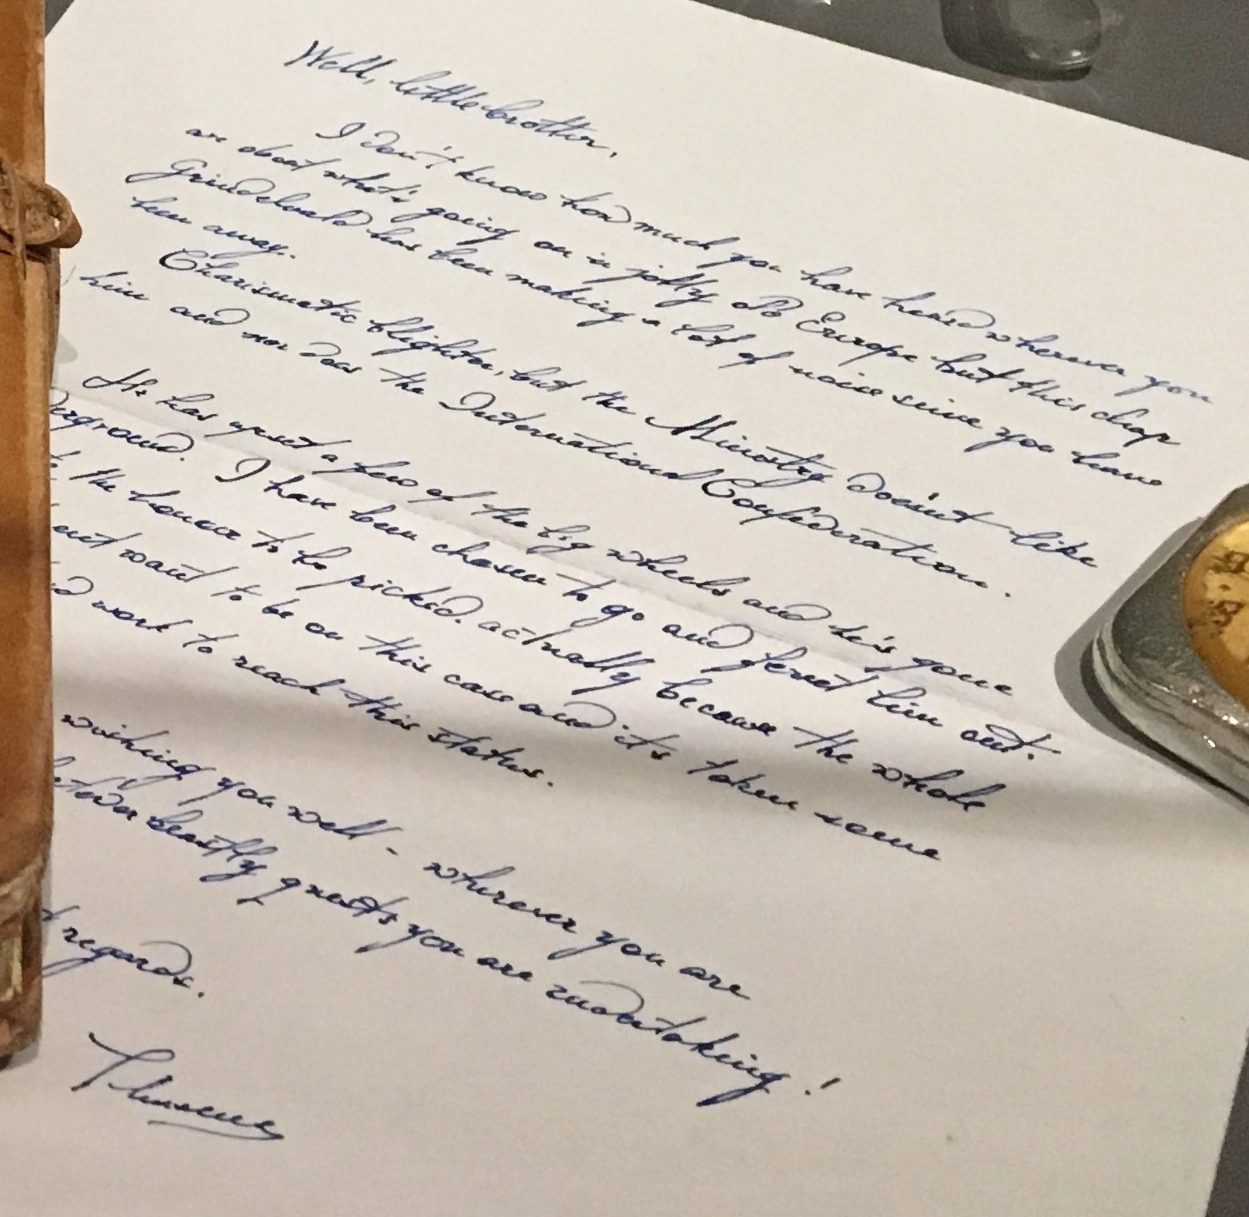 Well, little brother,
I don't know how much you have heard wherever you
are about what's going on in jolly old Europe but this chap
Grindelwald has been making a lot of noise since you have
been away.
Charismatic blighter, but the Ministry doesn't like
him and nor does the International Confederation.
He has upset a few of the big wheels and he's gone
derground. I have been chosen to go and ferret him out.
the honour to be picked, actually because the whole
want to be on this case and it's taken some
work to reach this status.
wishing you well - wherever you are
beastly quests you are undertaking!
regards.
Theseus